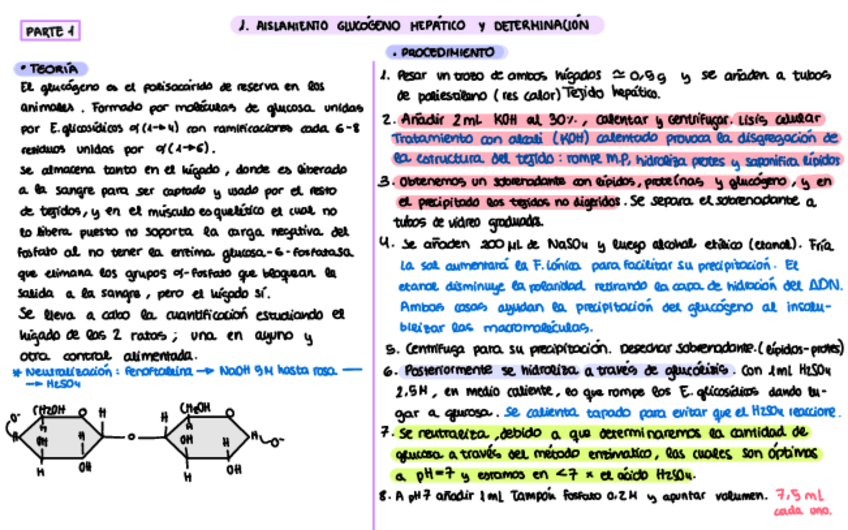 PARTE 1
1. AISLAMIENTO GLUCÓGENO HEPÁTICO Y DETERMINACIÓN
· TEORÍA
El glucógeno es el polisacárido de reserva en los
animales. Formado por moléculas de glucosa unidas
por E.glicosídicos α(1→4) con ramificaciones cada 6-8
residuos unidas por α(1→6).
Se almacena tanto en el hígado, donde es liberado
a la sangre para ser captado y usado por el resto
de tejidos, y en el músculo esquelético el cual no
lo libera puesto no soporta la carga negativa del
fosfato al no tener la enzima glucosa-6-fosfatasa
que elimina los grupos α-fosfato que bloquean la
salida a la sangre, pero el hígado sí.
Se lleva a cabo la cuantificación estudiando el
hígado de las 2 ratas; una en ayuno y
otra control alimentada.
* Neutralización: Fenoftaleína → NaOH 5M hasta rosa —
→ H2SO4
O⁻ CH2OH O H H CH2OH O
H H OH H O H OH H H O⁻
H OH H OH
· PROCEDIMIENTO
1. Pesar un trozo de ambos hígados ≃ 0,5g y se añaden a tubos
de poliestileno (res calor) Tejido hepático.
2. Añadir 2 mL KOH al 30%, calentar y centrifugar. Lisis celular
Tratamiento con alcali (KOH) calentado provoca la disgregación de
la estructura del tejido: rompe M.P, hidroliza protes y saponifica lípidos
3. Obtenemos un sobrenadante con lípidos, proteínas y glucógeno, y en
el precipitado los tejidos no digeridos. Se separa el sobrenadante a
tubos de vidreo graduada.
4. Se añaden 200 µL de NaSO4 y luego alcohol etílico (etanol). Fría
La sal aumentará la F.iónica para facilitar su precipitación. El
etanol disminuye la polaridad retirando la capa de hidración del ADN.
Ambas cosas ayudan la precipitación del glucógeno al insolu-
bleizar las macromoléculas.
5. Centrifuga para su precipitación. Desechar sobrenadante. (lípidos-protes)
6. Posteriormente se hidroliza a través de glucólisis. Con 1mL H2SO4
2,5M, en medio caliente, lo que rompe los E. glicosídicos dando lu-
gar a glucosa. Se calienta tapado para evitar que el H2SO4 reaccione.
7. Se neutraliza, debido a que determinaremos la cantidad de
glucosa a través del método enzimatico, las cuales son óptimas
a pH=7 y estamos en <7 x el ácido H2SO4.
8. A pH7 añadir 1mL Tampón fosfato 0,2M y apuntar volumen. 7,5 mL
cada uno.